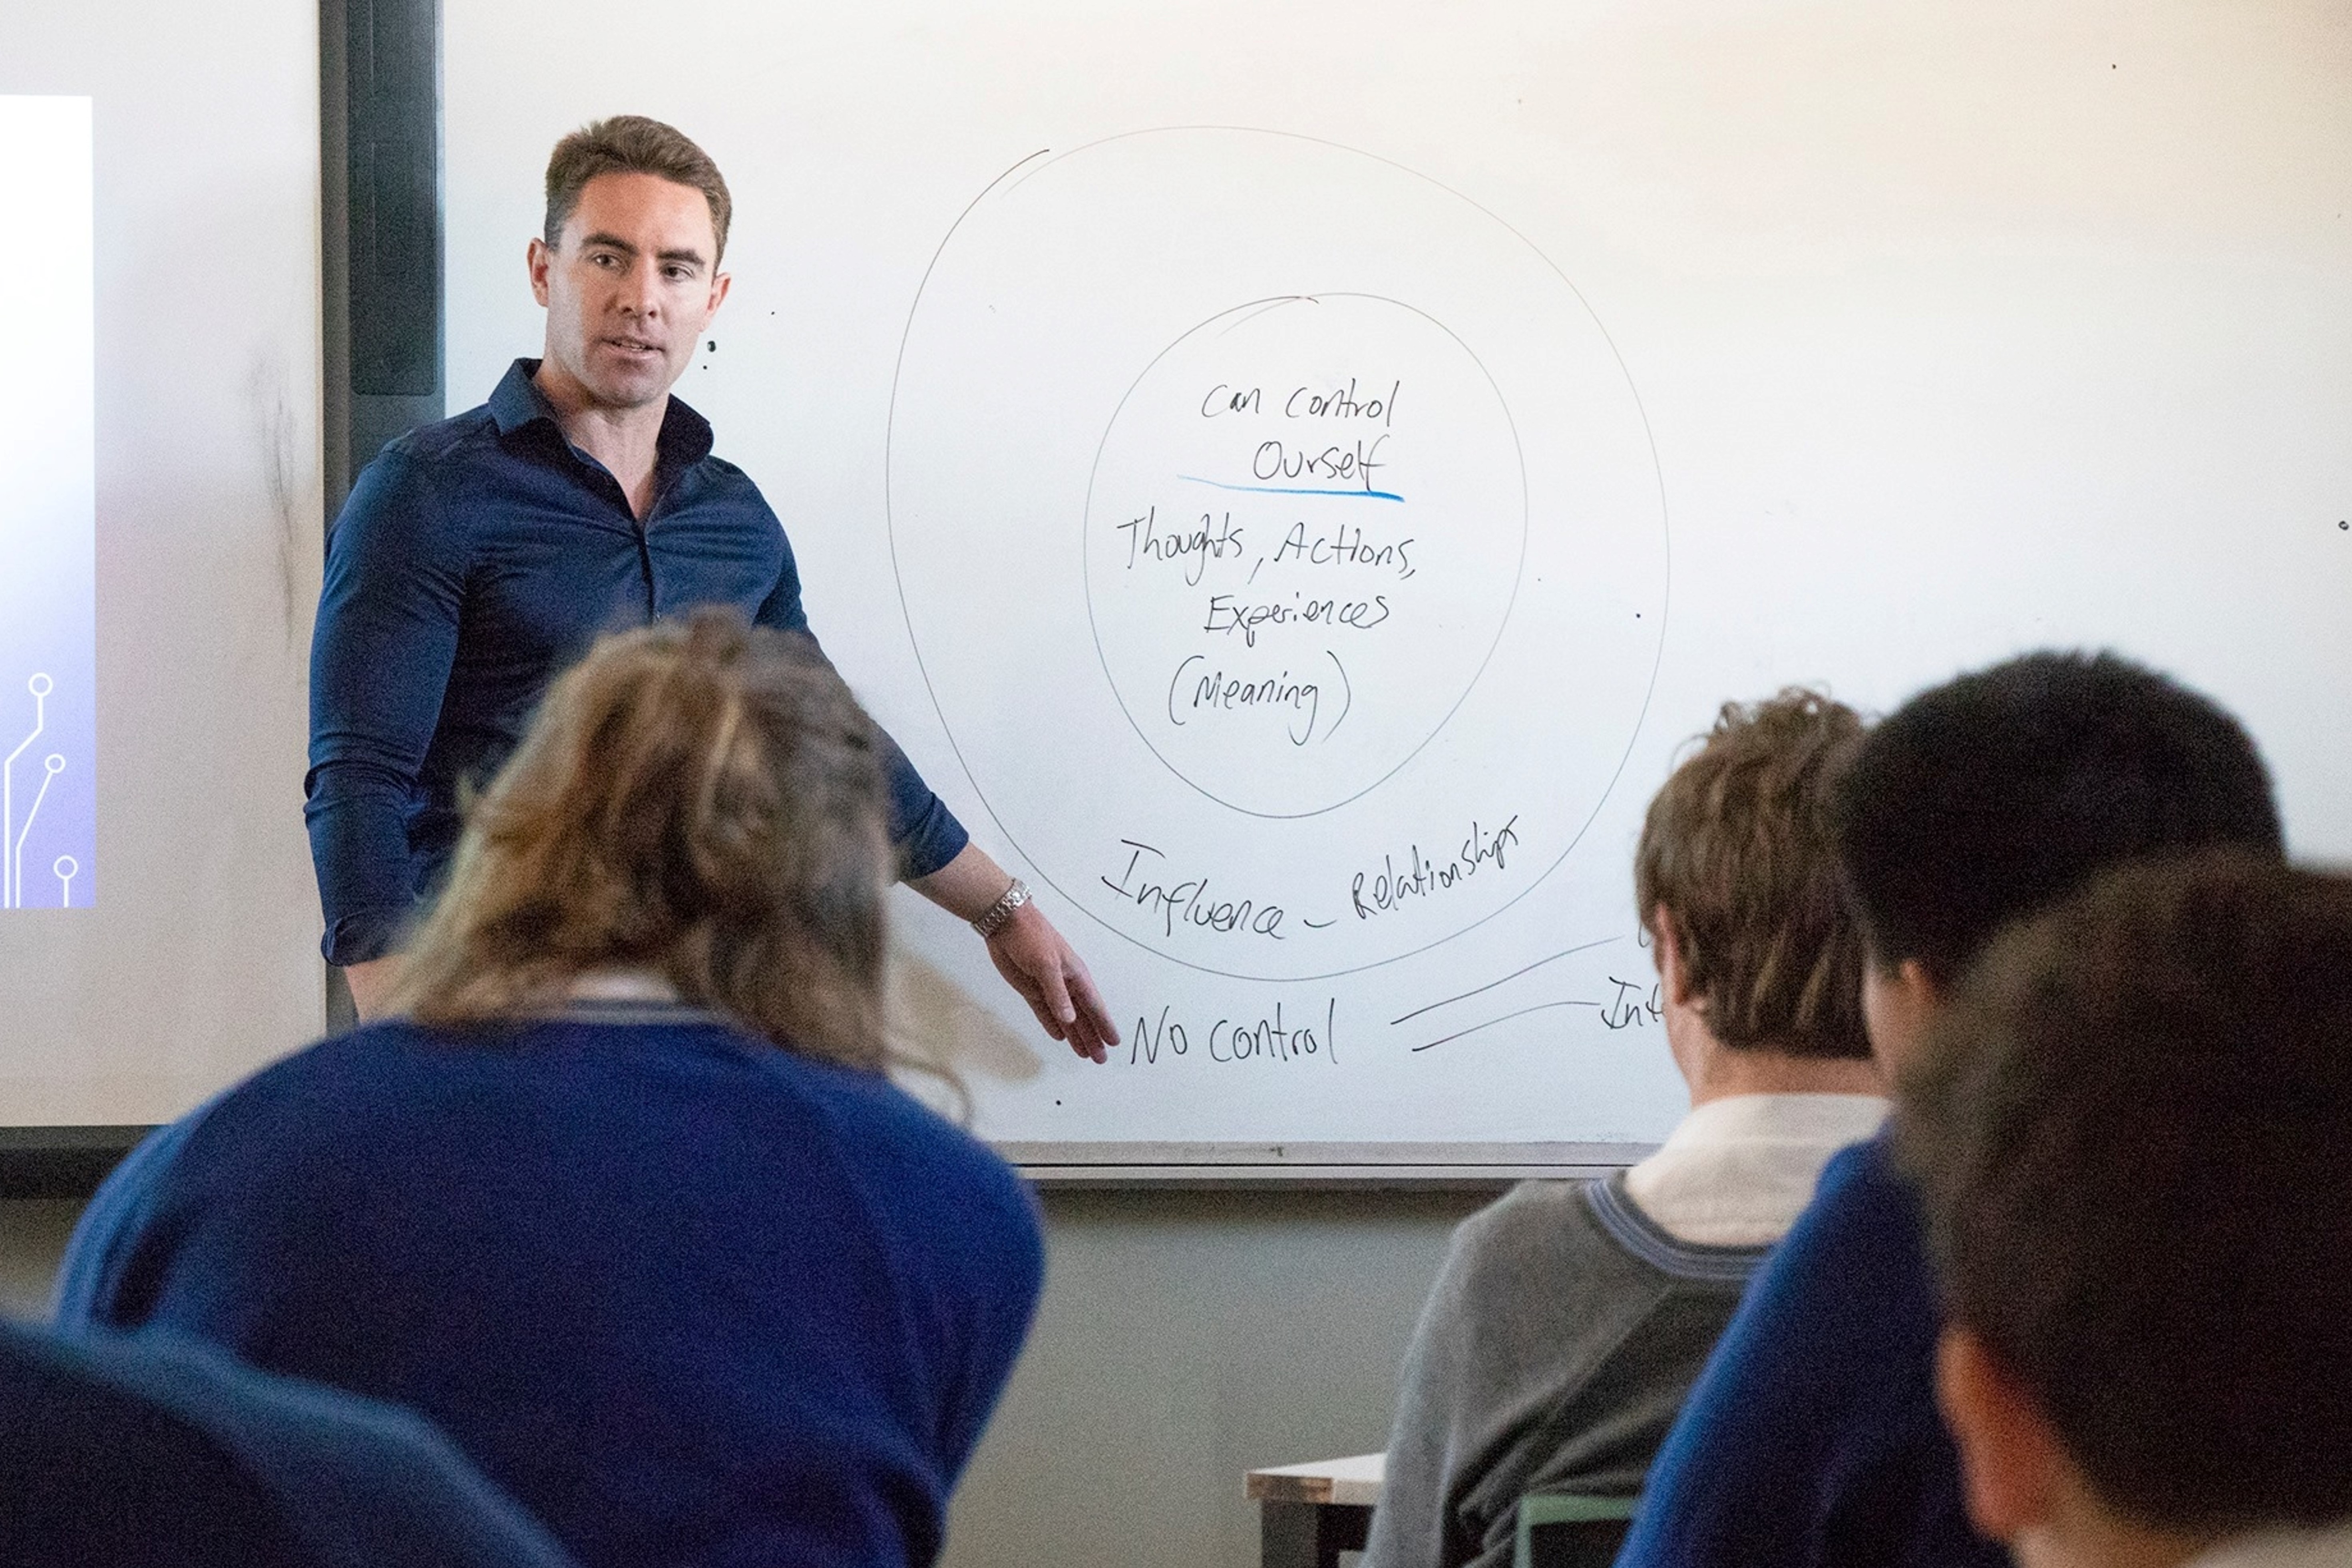 Can Control
Ourself
Thoughts, Actions,
Experiences
(Meaning)
Influence - Relationships
No Control